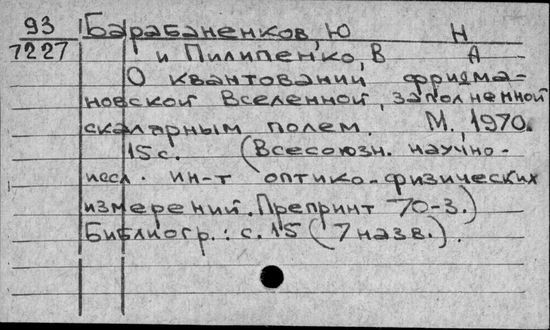 93 Барабаненков, Ю Н
7227 и Пилипенко, В А
О квантовании фридма-
новской Вселенной, заполненной
скалярным полем. М., 1970.
15 с. (Всесоюзн. научно-
иссл. ин-т оптико-физических
измерений. Препринт 70-3.)
Библиогр.: с. 15 (7 назв.).